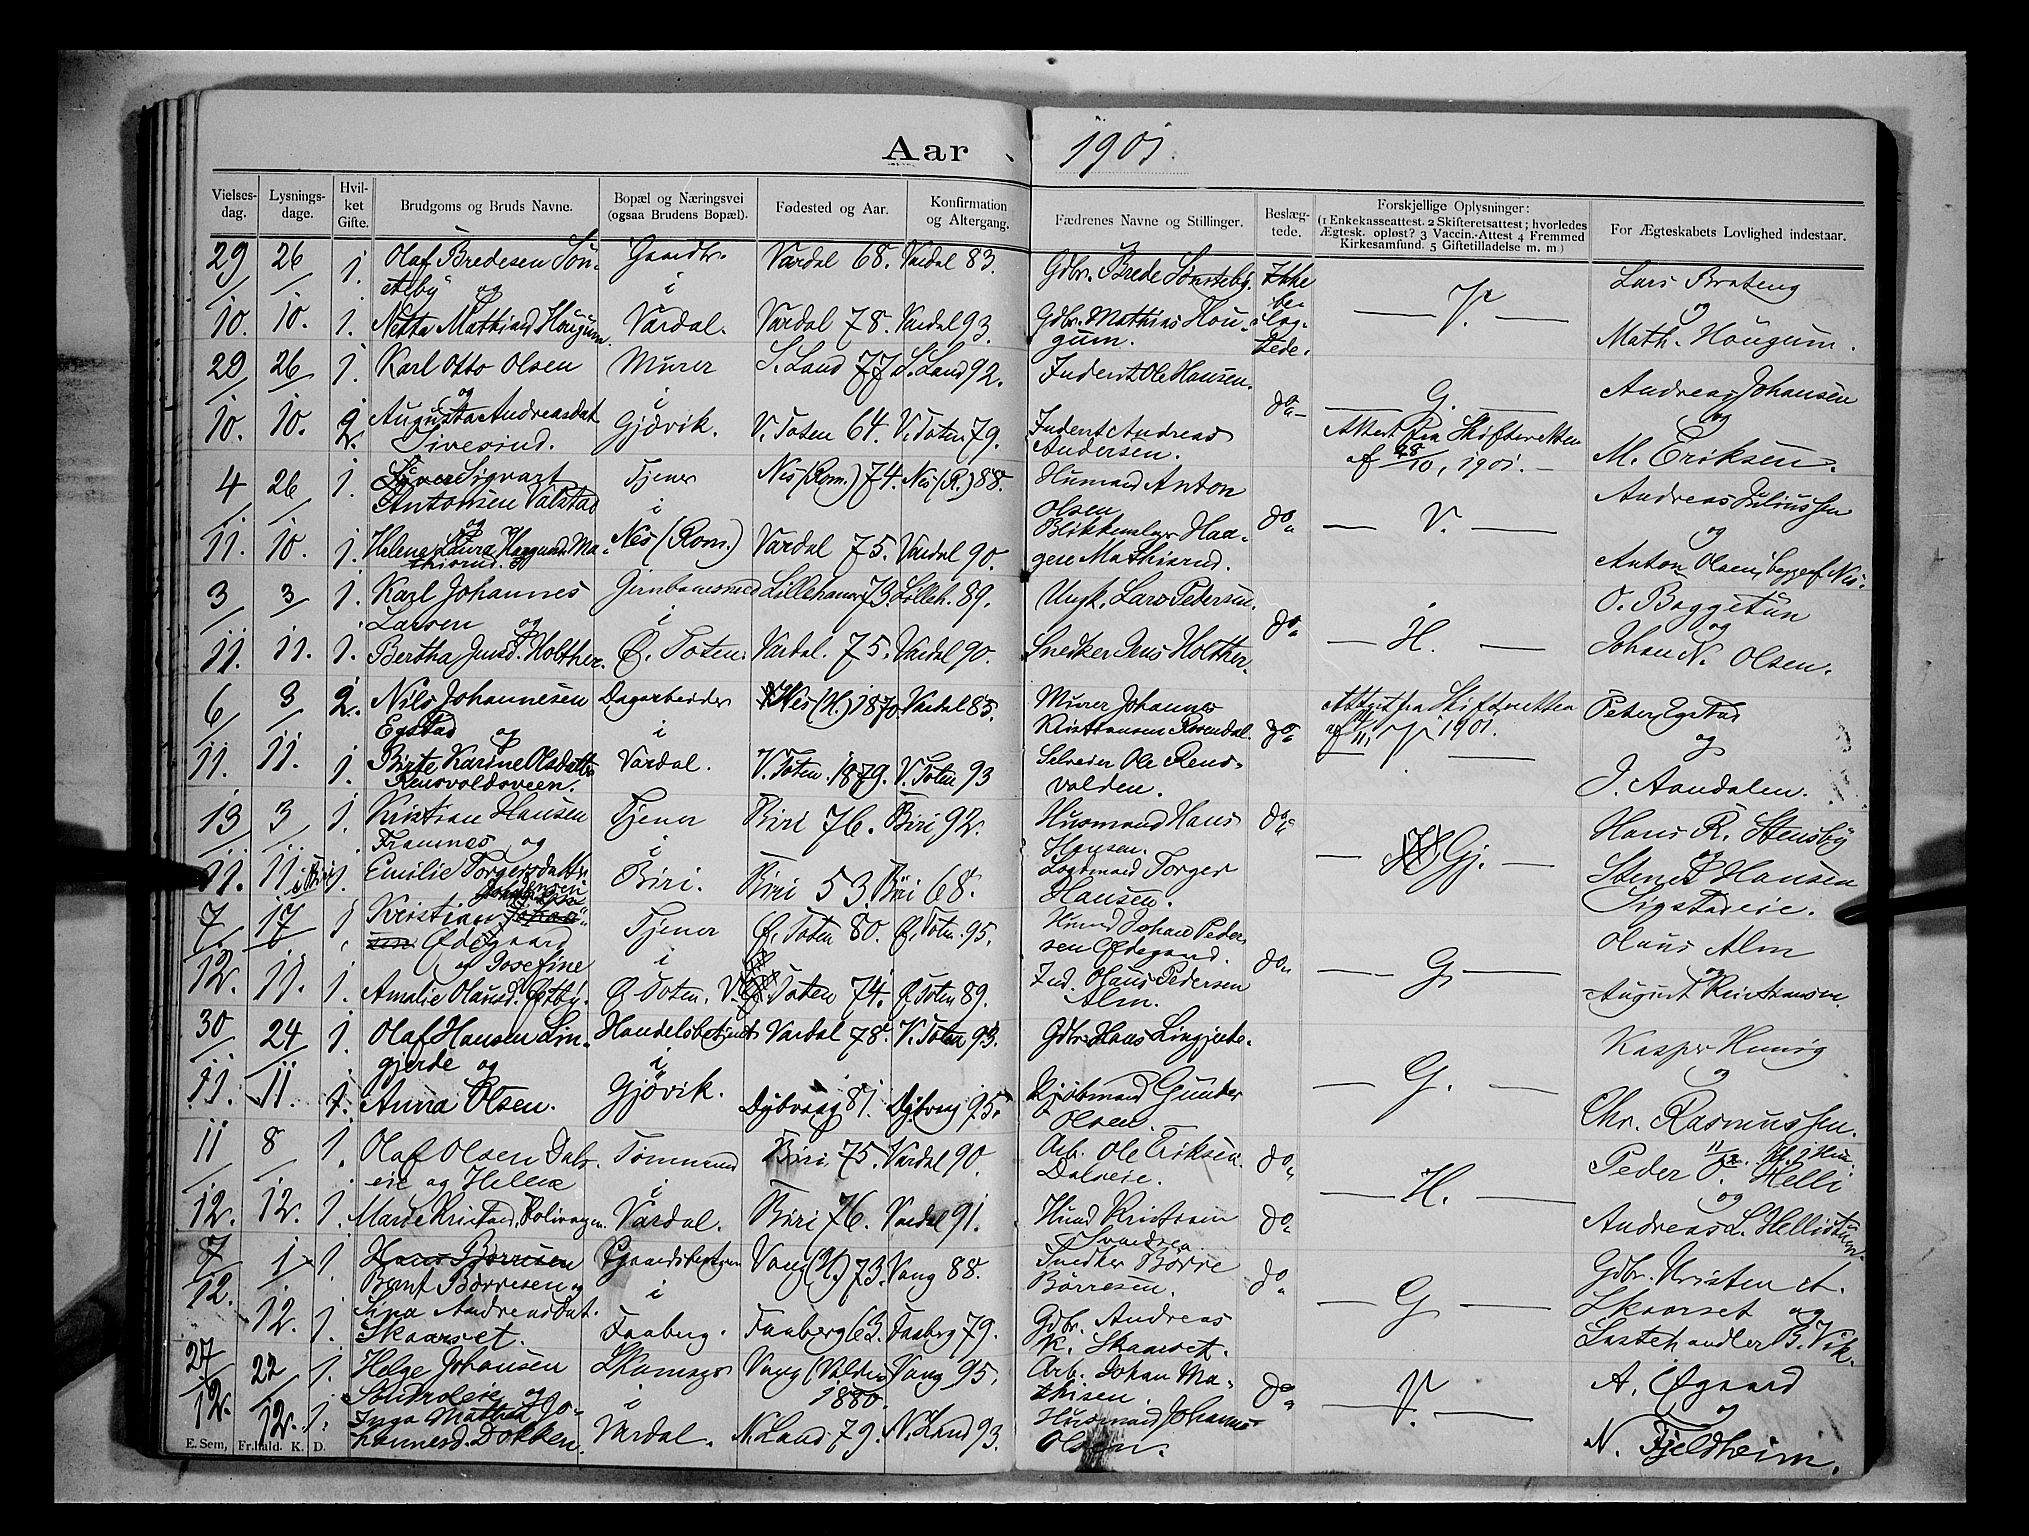 Aar 1901.
Vielses-dag. Lysnings-dage. Hvil-ket Gifte. Brudgoms og Bruds Navne. Bopæl og Næringsvei (ogsaa Brudens Bopæl). Fødested og Aar. Konfirmation og Altergang. Fædrenes Navne og Stillinger. Beslæg-tede. Forskjellige Oplysninger: (1 Enkekasseattest. 2 Skifteretsattest; hvorledes Ægtesk. opløst? 3 Vaccin.-Attest 4 Fremmed Kirkesamfund. 5 Giftetilladelse m. m.) For Ægteskabets Lovlighed indestaar.
29/ 26/ 1. Olaf Bredesen Søn- Gaardbr. Vardal 68. Vardal 83. Gdbr. Brede Sønsteby. Ikke Lars Brateng
steby og i be- og
10. 10. 1. Netta Mathiasd. Hougum Vardal. Vardal 78. Vardal 93. Gdbr. Mathias Hou- slæg- Math. Hougum.
gum. tede.
29/ 26/ 1. Karl Otto Olsen Murer S. Land 77 S. Land 92. Inderst Ole Hansen. do G. Andreas Johansen
og i og
10. 10. 2. Augusta Andreasdat. Gjøvik. V. Toten 64. V. Toten 79. Inderst Andreas Attest fra Skifteretten
Andersen. af 28/10, 1901. M. Eriksen.
4/ 26/ 1. Sigvart Tjener Nes (Rom.) 74. Nes (R.) 88. Husmand Anton Andreas Juliussen
Antonsen Valstad i Olsen do V. og
11. 10. 1. Helene Laura Haagensd. Ma- Nes (Rom.) Vardal 75. Vardal 90. Blikkenslager Haa-
thisrud. gen Mathisrud. Anton Olsen, begge af Nes.
3/ 3/ 1. Karl Johannes Lilleham. 73. Lilleh. 89. Ungk. Lars Pedersen. do O. Baggetun
Larsen og i og
11. 11. 1. Bertha Jensd. Holther. Ø. Toten. Vardal. 75. Vardal 90. Snedker Jens Holther. H. Johan N. Olsen.
6/ 3/ 2. Nils Johannesen Dagarbeider Nes (H.) 1870 Vardal 85. Murer Johannes Attest fra Skifteretten Peter Egstad
Egstad og i Kristiansen Rosendal. do 1901. og
11. 11. 1. Birte Karine Olsdatter Vardal. V. Toten. 1879. V. Toten 93 Selveier Ole Rens-
Rensvoldsveen. volden. J. Aandalen.
13/ 3/ 1. Kristian Hansen Tjener Biri 76. Biri 92. Husmand Hans do Hans R. Stensby
Framnes og i Hansen. Gj. og
11. 11. i Biri 1. Emilie Torgersdatter Biri. Biri 53. Biri 68. Torger Stener Hansen
Hansen. Sigstadeie.
7/ 17/ 1. Kristian Johansen Tjener Ø. Toten 80. Ø. Toten 95. Husmd. Johan Peder- Olaus Alm
Ødegaard i sen Ødegaard. do G. og
12. 11. 1. og Josefine Amalie Olausd. Østby. Ø. Toten. V. Toten 74. Ø. Toten 89. Ind. Olaus Pedersen August Kristiansen.
Alm.
30/ 24/ 1. Olaf Hansen Lin- Handelsbetjent Vardal 78. V. Toten 93. Gdbr. Hans Lingjerde. Kasper
gjerde og i G. og
11. 11. 1. Anna Olsen. Gjøvik. Dybvaag 81. Dybvaag 95. Kjøbmand Gunder Chr. Rasmussen.
Olsen.
11/ 8/ 1. Olaf Olsen Dals- Tømmermd Biri 75. Vardal 90. Arb. Ole Eriksen do Peder O. Helli
eie og Helene i Dalseie. H. og
12. 12. 1. Marie Kristiansd. Vardal. Biri 76. Vardal 91. Husmd Kristian do Andreas L. Hellistuen.
7/ 1/ 1. Hans Børresen Vang (H.) 73. Vang 88. Snedker Børre Gdbr. Kristen
12. Bernt Børresen og i Børresen. do G. Skaarset og
12. 1. Lina Andreasdat. Faaberg. Faaberg 63. Faaberg 79. Gdbr. Andreas Lastehandler B. Vik.
Skaarset. K. Skaarset.
27/ 22/ 1. Helge Johansen Skomager Vang (Valdres) Vang 95. Arb. Johan Ma- A. Øgaard
og i 1880. thisen. do V. og
12. 12. 1. Inga Mathea Jo- Vardal. N. Land 79. N. Land 93. Husmand Johannes N. Fjeldheim.
hannesd. Dokken. Olsen.
E. Sem, Fr.hald. K. D.